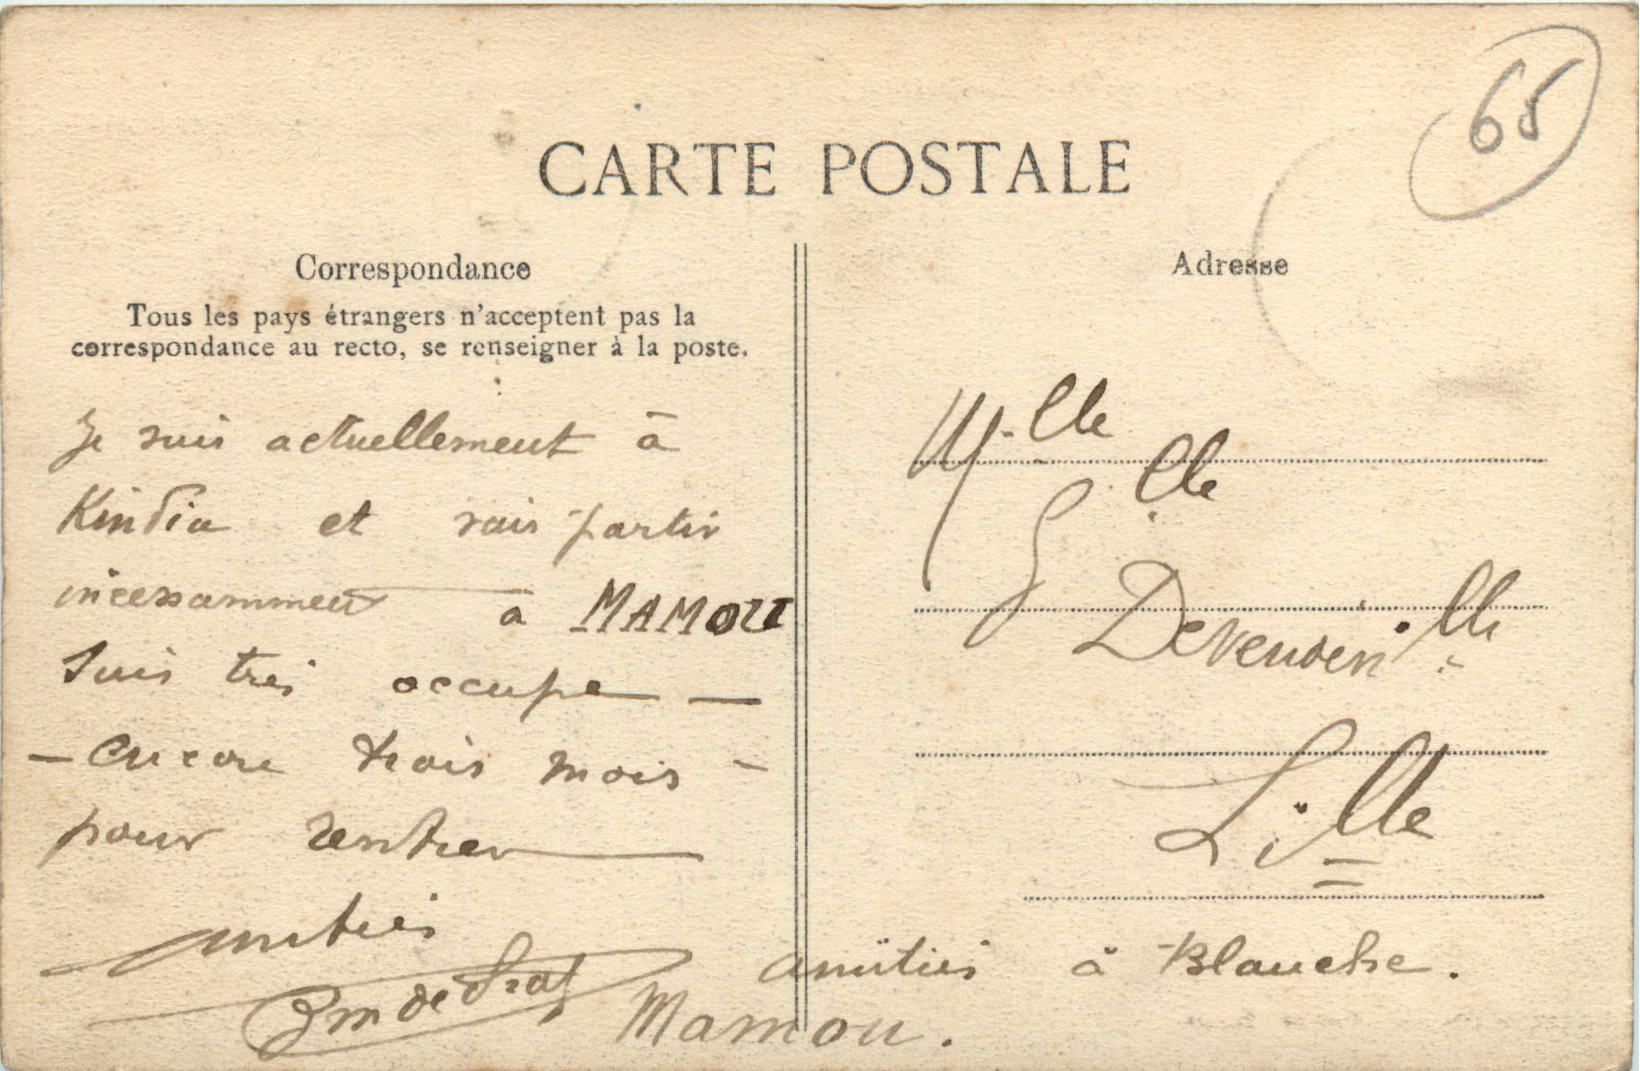 65
CARTE POSTALE
Correspondance
Tous les pays étrangers n'acceptent pas la
correspondance au recto, se renseigner à la poste.
Je suis actuellement à
Kindia et vais partir
incessamment à MAMOU
Suis très occupé —
— encore trois mois -
pour rentrer
amitiés
Adresse
M.lle
Lille
amitiés à Blanche.
Mamou.